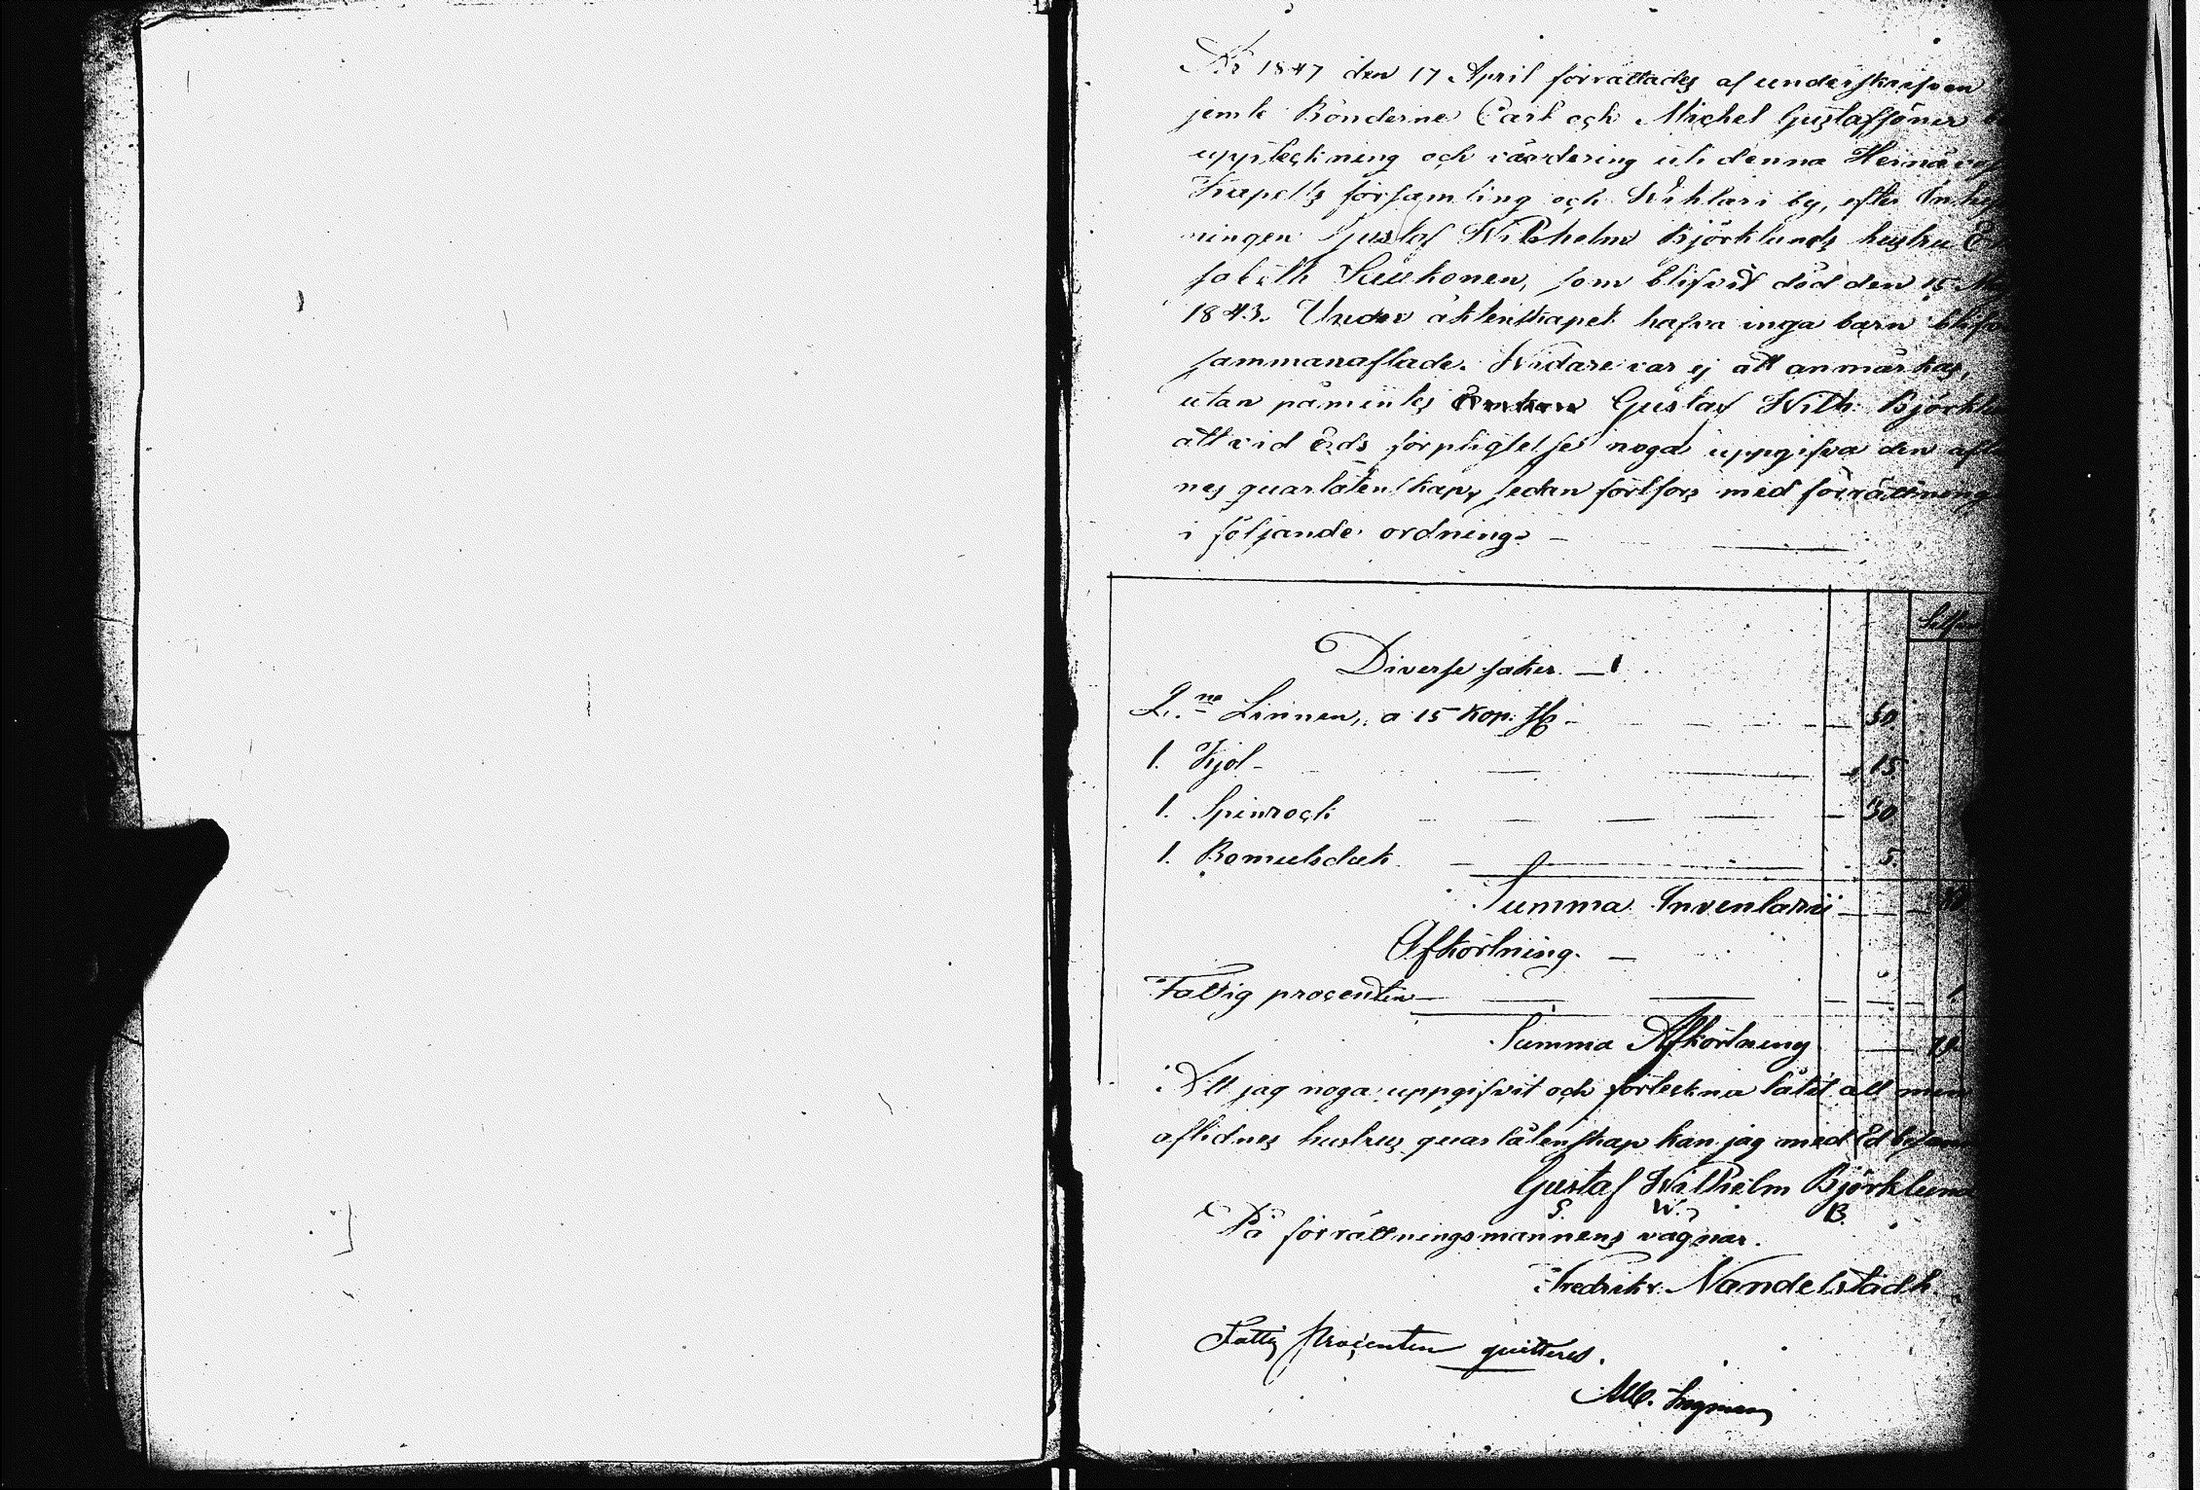 År 1847 den 17 April förrättades af underskrifven
jemte Bönderne Carl och Michel Gustafsöner
uppteckning och värdering uti denna Heinäves
Kapells församling och Wihtari by, efter Inhys
ningen Gustaf Wilhelm Björklunds hustru E
sabeth Kuukonen, som blifvit död den 15 Ma
1843. Under äktenskapet hafva inga barn blifv
sammanaflade. Widare var ej att anmärkas,
utan påmintes Gustaf Wilh: Björklu
att vid Eds förpligtelse noga uppgifva den afl
nes quarlåtenskap, sedan fortfors med förrättning
i följande ordning. —
Silfver
Diverse saker. —
2.ne Linnen, a 15 kop. Sr — 30.
1. Kjol — 15.
1. Spinrock — 30.
1. Bomulsduk — 5.
Summa Inventarii — 80
Afkortning. —
Fattig procenten — 1
Summa Afkortning — 79.
Att jag noga uppgifvit och förteckna låtit all min
aflidnes hustrus quarlåtenskap kan jag med Ed
Gustaf Wilhelm Björklund
G. W. B.
På förrättningsmannens vägnar.
Fredrik Nandelstadh.
Fattig Procenten quitteras.